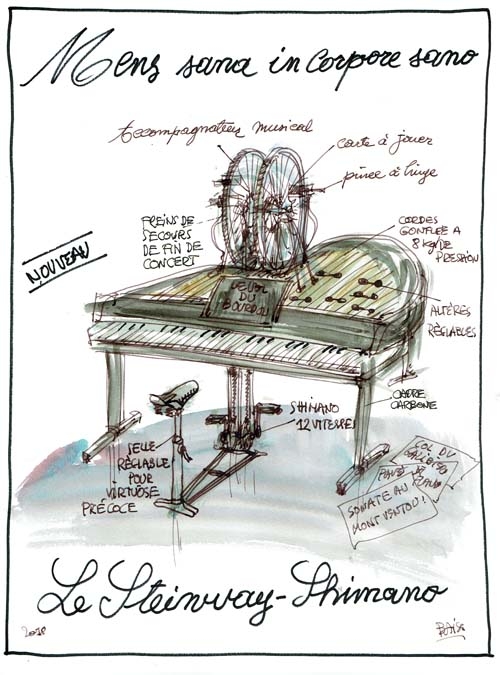 Mens sana in corpore sano
Accompagnateur musical
carte à jouer
pince à linge
FREINS DE
SECOURS
DE FIN DE
CONCERT
CORDES
GONFLEE A
8 KG/DE
PRESSION
NOUVEAU
LE VOL
DU
BOURDON
ALTÈRES
RÉGLABLES
CADRE
CARBONE
SHIMANO
12 VITESSES
SELLE
RÉGLABLE
POUR
VIRTUOSE
PRÉCOCE
COL DU
PAVÉ
SONATE AU
MONT VENTOU!
Le Steinway-Shimano
2018